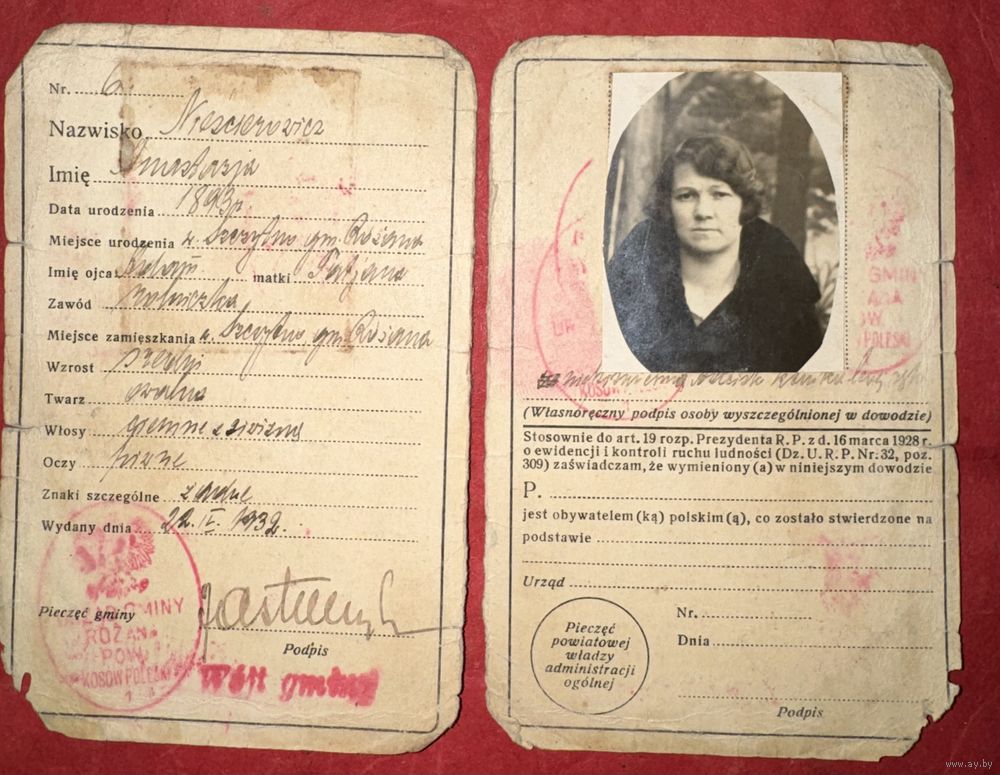 Nr. 6
Nazwisko Nieścierowicz
Imię Anastazja
Data urodzenia 1893 r.
Miejsce urodzenia w. Szczytno gm. Różana
Imię ojca matki Tatjana
Zawód rolniczka
Miejsce zamieszkania w. Szczytno gm. Różana
Wzrost średni
Twarz owalna
Włosy ciemne z siwizną
Oczy piwne
Znaki szczególne żadne
Wydany dnia 22. II. 1932.
Pieczęć gminy
URZĄD GMINY
RÓŻANA
POW.
KOSÓW POLESKI
Podpis
Wójt gminy
GMINY
POLESKI
KOSÓW
(Własnoręczny podpis osoby wyszczególnionej w dowodzie)
Stosownie do art. 19 rozp. Prezydenta R. P. z d. 16 marca 1928 r.
o ewidencji i kontroli ruchu ludności (Dz. U. R. P. Nr. 32, poz.
309) zaświadczam, że wymieniony (a) w niniejszym dowodzie
P.
jest obywatelem (ką) polskim (ą), co zostało stwierdzone na
podstawie
Urząd
Pieczęć
powiatowej
władzy
administracji
ogólnej
Nr.
Dnia
Podpis
www.ay.by